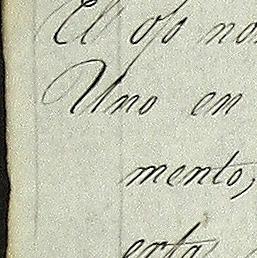 El ojo no
Uno en
mento,